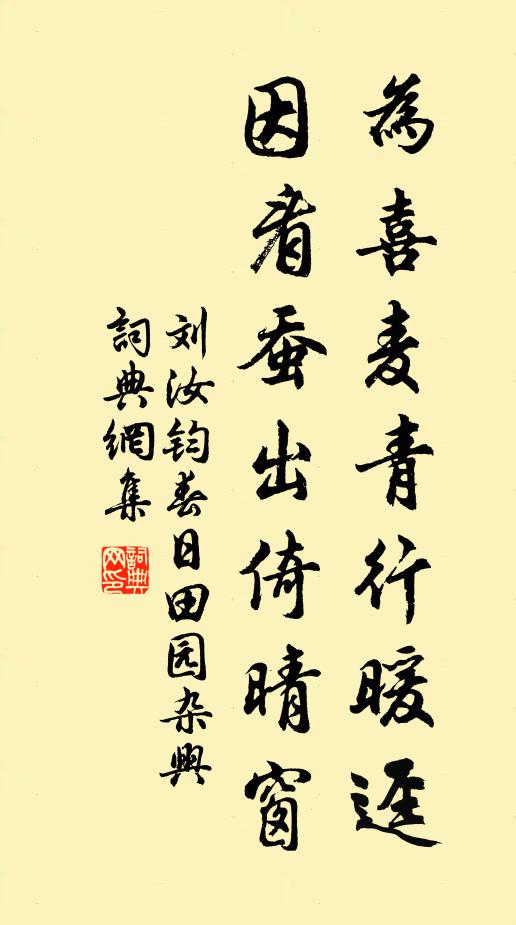 為喜麦青行暖迳
因看蚕出倚晴窗
刘汝鈞春日田园杂興
詞典網集
詞典网印